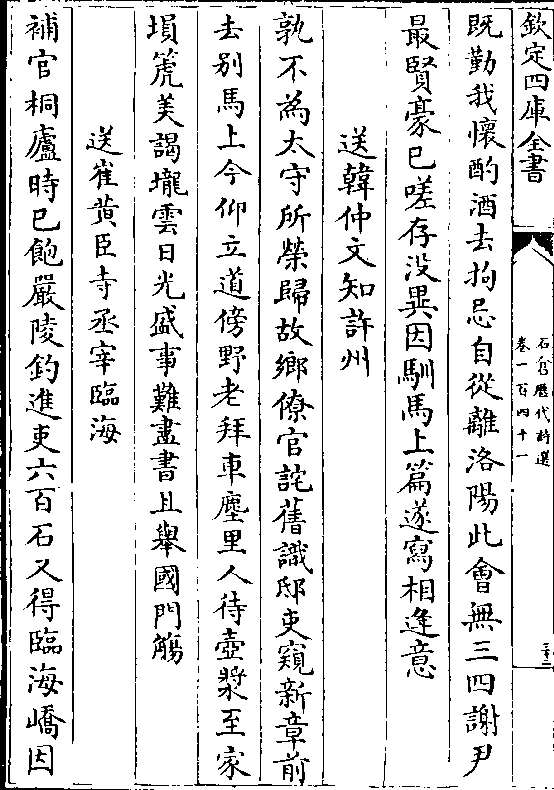 欽定四庫全書
石倉歷代詩選
卷一百四十一
二十三
既勤我懷酌酒去拘忌自從離洛陽此會無三四謝尹
最賢豪已嗟存没異因馴馬上篇遂寫相逢意
送韓仲文知許州
孰不為太守所榮歸故鄉僚官詫舊識邸吏窺新章前
去别馬上今仰立道傍野老拜車塵里人待壺漿至家
塤箎美謁壠雲日光盛事難盡書且舉國門觴
送崔黄臣寺丞宰臨海
補官桐廬時已飽嚴陵釣進吏六百石又得臨海嶠因